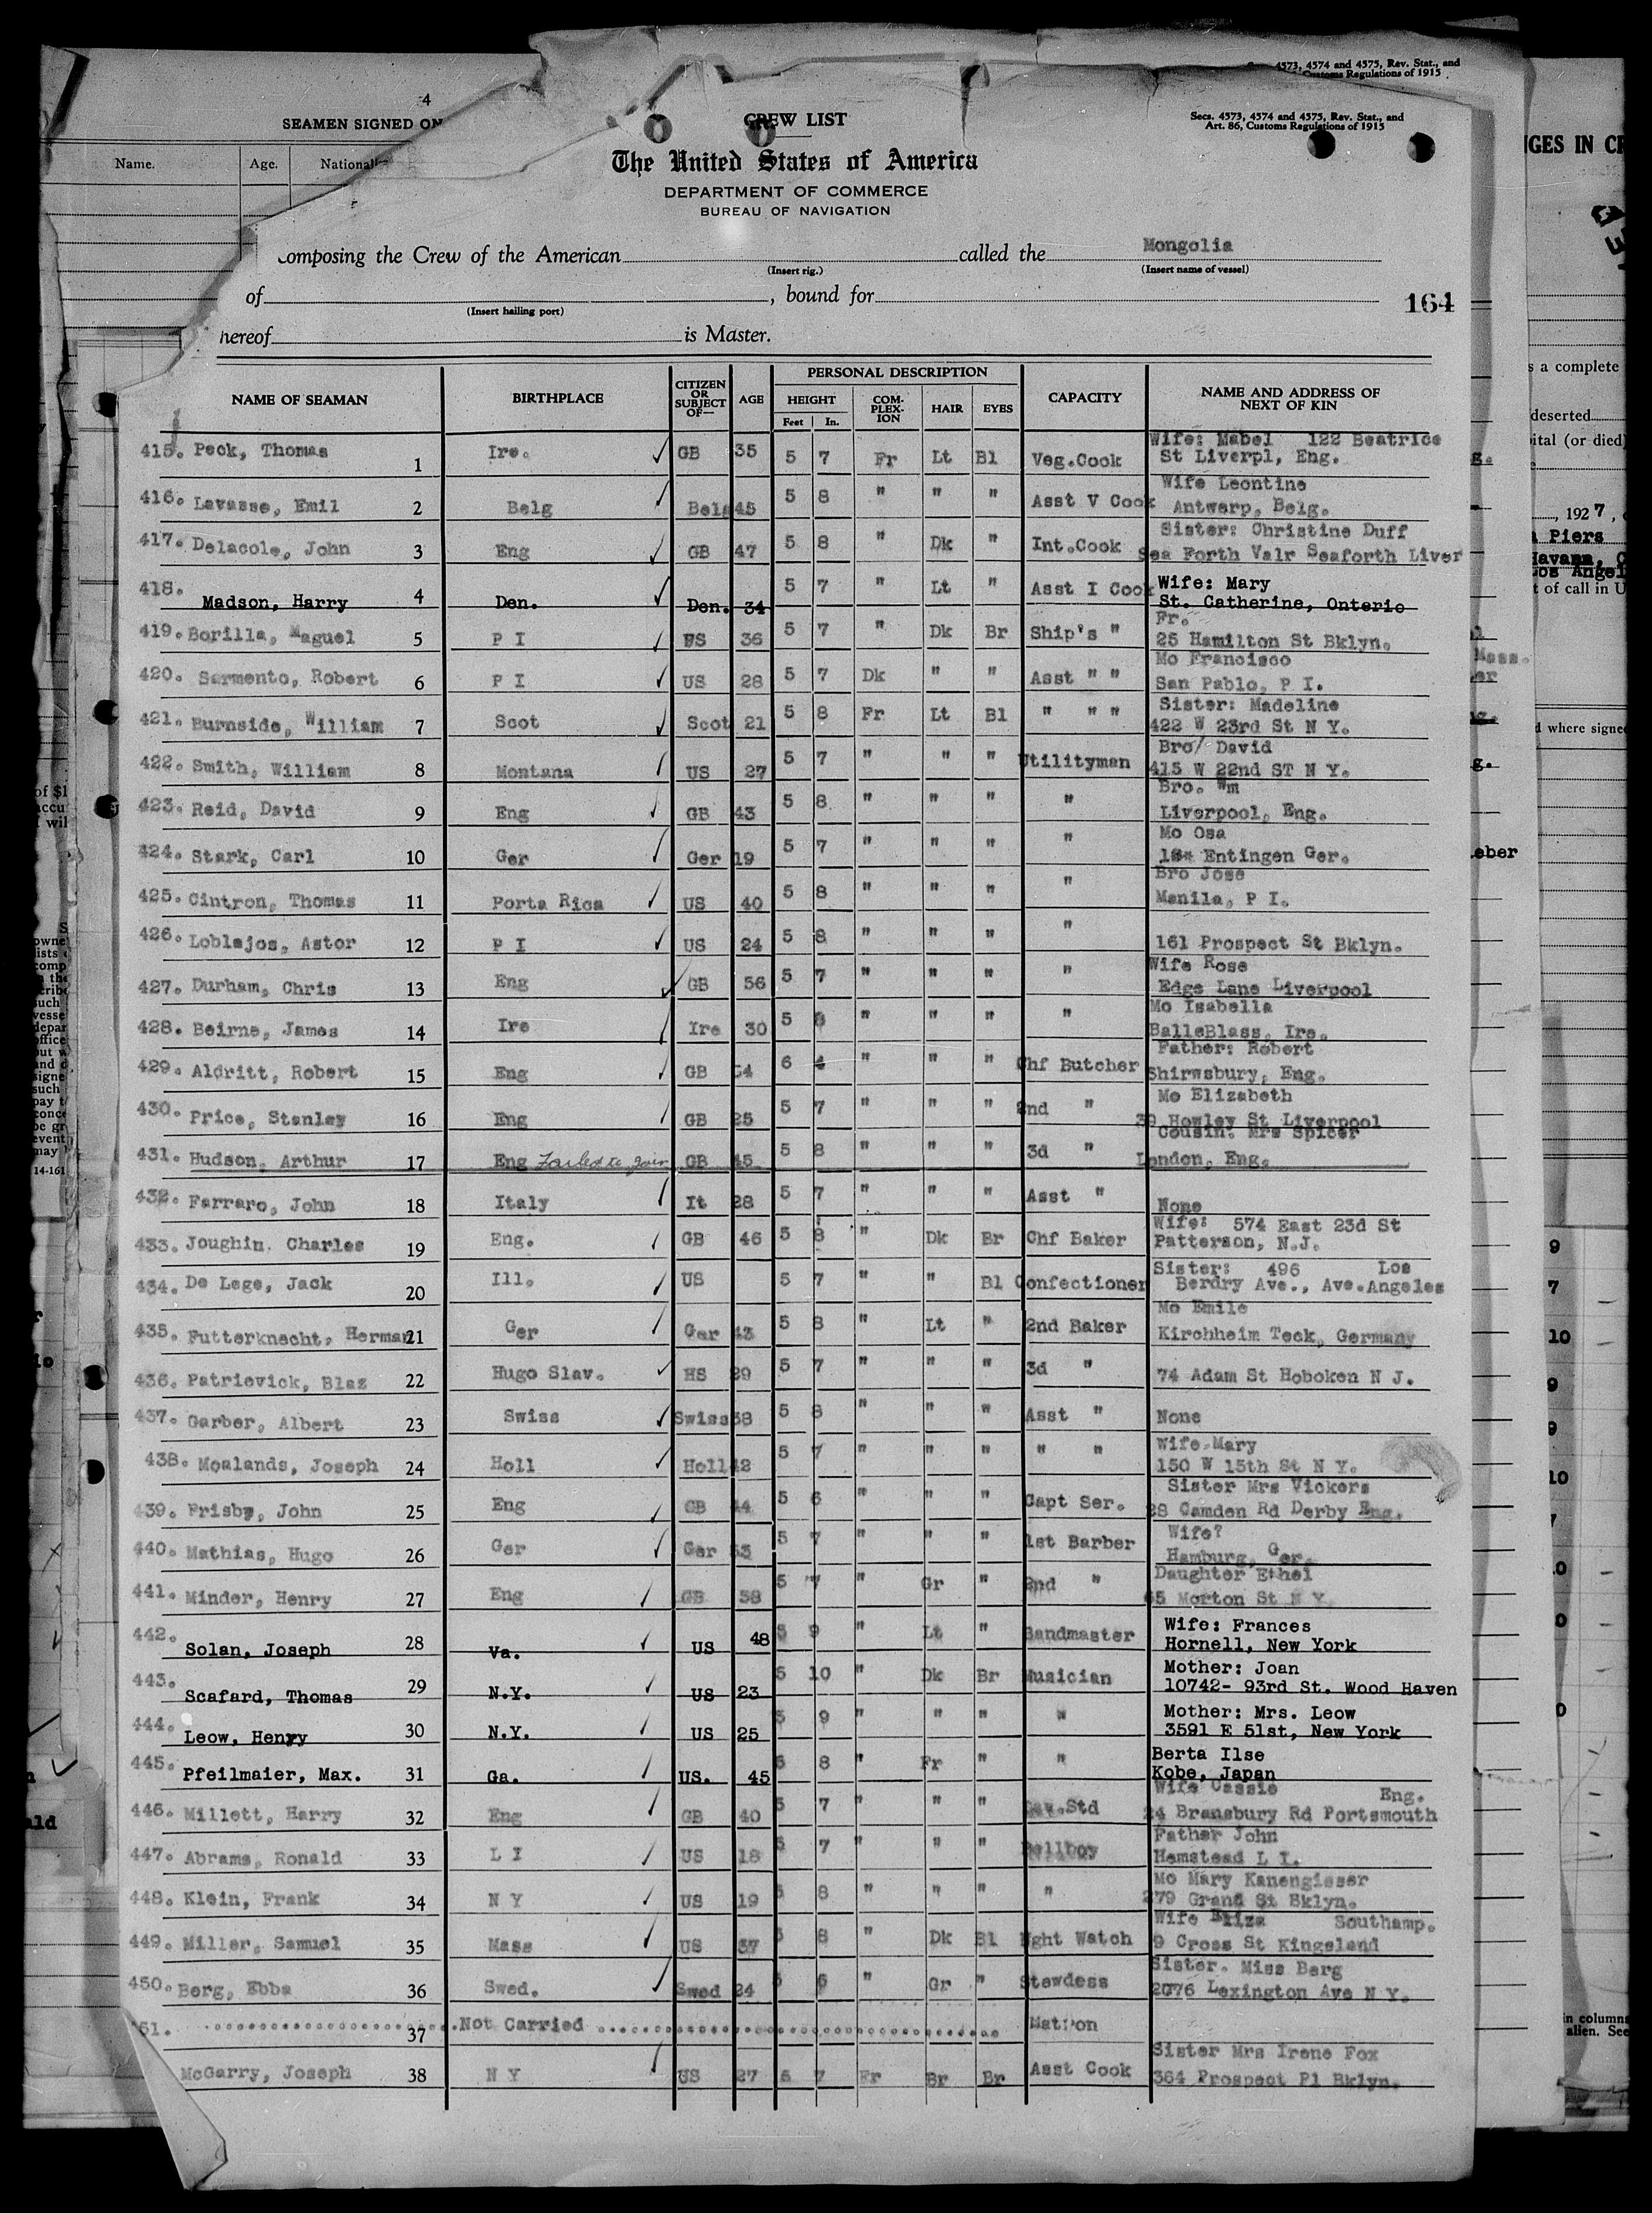 4
SEAMEN SIGNED ON
Name. Age.
4573, 4574 and 4575, Rev. Stat., and
Customs Regulations of 1915
CREW LIST
Secs. 4573, 4574 and 4575, Rev. Stat., and
Art. 86, Customs Regulations of 1915
The United States of America
DEPARTMENT OF COMMERCE
BUREAU OF NAVIGATION
composing the Crew of the American called the Mongolia
(Insert rig.) (Insert name of vessel)
of , bound for 164
(Insert hailing port)
hereof is Master.
NAME OF SEAMAN BIRTHPLACE CITIZEN OR SUBJECT OF— AGE PERSONAL DESCRIPTION CAPACITY NAME AND ADDRESS OF NEXT OF KIN
HEIGHT COMPLEXION HAIR EYES
Feet In.
415. Peck, Thomas 1 Ire. ✓ GB 35 5 7 Fr Lt Bl Veg.Cook Wife: Mabel 122 Beatrice
St Liverpl, Eng.
416. Lavasse, Emil 2 Belg ✓ Belg 45 5 8 " " " Asst V Cook Wife Leontine
Antwerp, Belg.
417. Delacole, John 3 Eng ✓ GB 47 5 8 " Dk " Int.Cook Sister: Christine Duff
Sea Forth Valr Seaforth Liver
418. Madson, Harry 4 Den. ✓ Den. 34 5 7 " Lt " Asst I Cook Wife: Mary
St. Catherine, Onterio
419. Borilla, Maguel 5 P I ✓ US 36 5 7 " Dk Br Ship's " Fr.
25 Hamilton St Bklyn.
420. Sarmento, Robert 6 P I ✓ US 28 5 7 Dk " " Asst " " Mo Francisco
San Pablo, P I.
421. Burnside, William 7 Scot ✓ Scot 21 5 8 Fr Lt Bl " " " Sister: Madeline
422 W 23rd St N Y.
422. Smith, William 8 Montana ✓ US 27 5 7 " " " Utilityman Bro/ David
415 W 22nd ST N Y.
423. Reid, David 9 Eng ✓ GB 43 5 8 " " " " Bro. Wm
Liverpool, Eng.
424. Stark, Carl 10 Ger ✓ Ger 19 5 7 " " " " Mo Osa
Entingen Ger.
425. Cintron, Thomas 11 Porta Rica ✓ US 40 5 8 " " " " Bro Jose
Manila, P I.
426. Loblajos, Astor 12 P I ✓ US 24 5 8 " " " "
161 Prospect St Bklyn.
427. Durham, Chris 13 Eng ✓ GB 56 5 7 " " " " Wife Rose
Edge Lane Liverpool
428. Beirne, James 14 Ire ✓ Ire 30 5 8 " " " " Mo Isabella
BalleBlass, Ire.
429. Aldritt, Robert 15 Eng ✓ GB 6 4 " " " Chf Butcher Father: Robert
Shirwsbury, Eng.
430. Price, Stanley 16 Eng ✓ GB 25 5 7 " " " 2nd " Mo Elizabeth
39 Howley St Liverpool
431. Hudson, Arthur 17 Eng Failed to join GB 45 5 8 " " " 3d " Cousin. Mrs Spicer
London, Eng.
432. Farraro, John 18 Italy ✓ It 28 5 7 " " " Asst "
None
433. Joughin, Charles 19 Eng. ✓ GB 46 5 8 " Dk Br Chf Baker Wife: 574 East 23d St
Patterson, N.J.
434. De Lege, Jack 20 Ill. ✓ US 5 7 " " Bl Confectioner Sister: 496 Los
Berdry Ave., Ave.Angeles
435. Futterknecht, Herman 21 Ger ✓ Ger 43 5 8 " Lt " 2nd Baker Mo Emile
Kirchheim Teck, Germany
436. Patrievick, Blaz 22 Hugo Slav. ✓ HS 29 5 7 " " " 3d "
74 Adam St Hoboken N J.
437. Garber, Albert 23 Swiss ✓ Swiss 38 5 8 " " " Asst " None
438. Moalands, Joseph 24 Holl ✓ Holl 42 5 7 " " " " " Wife-Mary
150 W 15th St N Y.
439. Frisby, John 25 Eng ✓ GB 44 5 6 " " " Capt Ser. Sister Mrs Vickers
28 Camden Rd Derby Eng.
440. Mathias, Hugo 26 Ger ✓ Ger 53 5 7 " " " 1st Barber Wife?
Hamburg, Ger.
441. Minder, Henry 27 Eng ✓ GB 38 5 7 " Gr " 2nd " Daughter Ethel
65 Morton St N Y.
442. Solan, Joseph 28 Va. ✓ US 48 5 9 " Lt " Bandmaster Wife: Frances
Hornell, New York
443. Scafard, Thomas 29 N.Y. ✓ US 23 5 10 " Dk Br Musician Mother: Joan
10742- 93rd St. Wood Haven
444. Leow, Henry 30 N.Y. ✓ US 25 5 9 " " " " Mother: Mrs. Leow
3591 E 51st, New York
445. Pfeilmaier, Max. 31 Ga. ✓ US. 45 5 8 " Fr " " Berta Ilse
Kobe, Japan
446. Millett, Harry 32 Eng ✓ GB 40 5 7 " " " Sav.Std Wife Cassie Eng.
24 Bransbury Rd Portsmouth
447. Abrams, Ronald 33 L I ✓ US 18 5 7 " " " Bellboy Father John
Hemstead L I.
448. Klein, Frank 34 N Y ✓ US 19 5 8 " " " " Mo Mary Kanengiesser
279 Grand St Bklyn.
449. Miller, Samuel 35 Mass ✓ US 37 5 8 " Dk Bl Nght Watch Wife Eliza Southamp.
9 Cross St Kingsland
450. Berg, Ebba 36 Swed. ✓ Swed 24 5 6 " Gr " Stewdess Sister. Miss Berg
2076 Lexington Ave N Y.
451. 37 Not Carried Matron
McGarry, Joseph 38 N Y ✓ US 27 5 7 Fr Br Br Asst Cook Sister Mrs Irene Fox
364 Prospect Pl Bklyn.